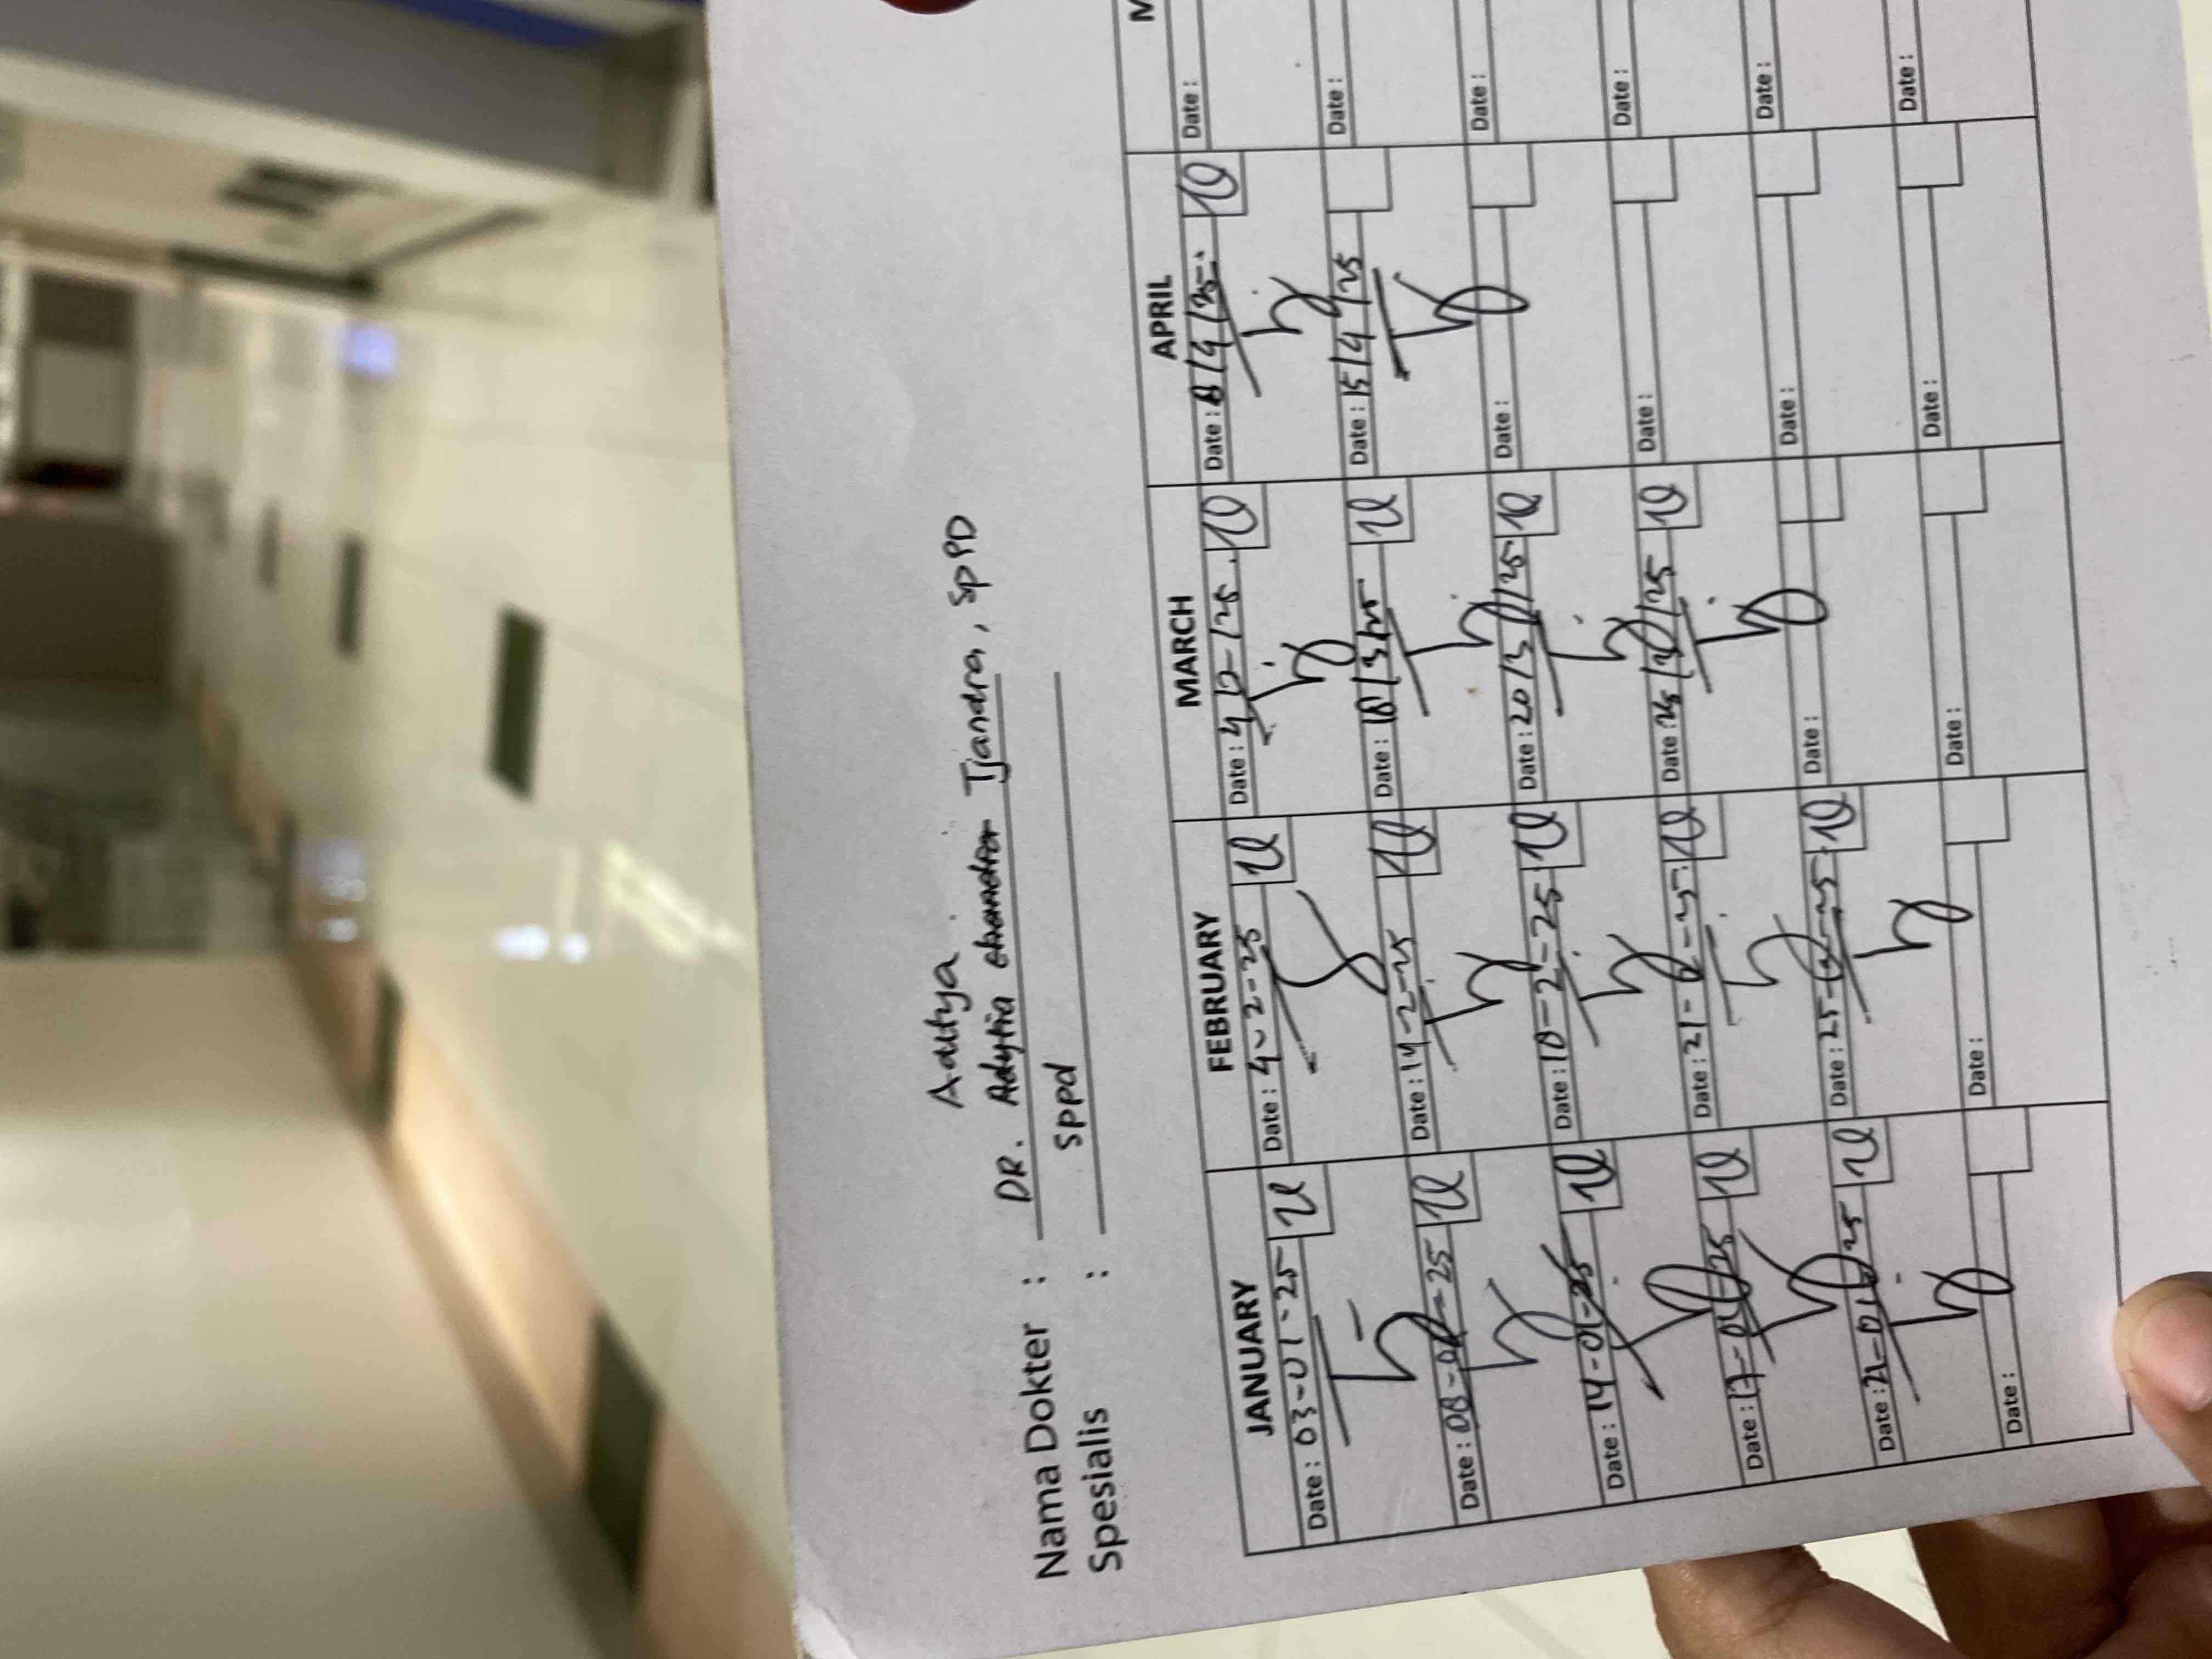 Aditya
Nama Dokter : DR. Adytia chandra Tjandra, SpPD
Spesialis : sppd
JANUARY FEBRUARY MARCH APRIL M
Date : 03-01-25 Date : 4-2-25 Date : 4 /25 Date : 8/4/25 Date :
Date : 08-01-25 Date : 14-2-25 Date : 18/3/25 Date : 15/4/25 Date :
Date : 14-01-25 Date : 18-2-25 Date : 20/3/25 Date : Date :
Date : 17-01-25 Date : 21-2-25 Date : /3/25 Date : Date :
Date : 21-01-25 Date : 25-2-25 Date : Date : Date :
Date : Date : Date : Date : Date :